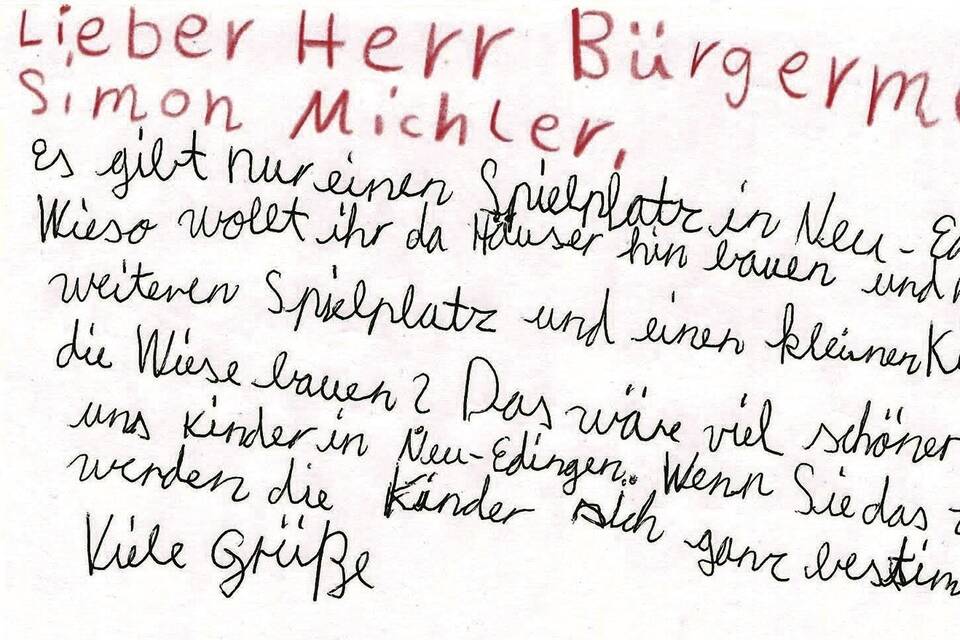 Lieber Herr Bürgerme
Simon Michler,
Es gibt nur einen Spielplatz in Neu-Ed
Wieso wollt ihr da Häuser hin bauen und
weiteren Spielplatz und einen kleinen K
die Wiese bauen? Das wäre viel schöner
uns Kinder in Neu-Edingen. Wenn Sie das
werden die Kinder sich ganz bestim
Viele Grüße